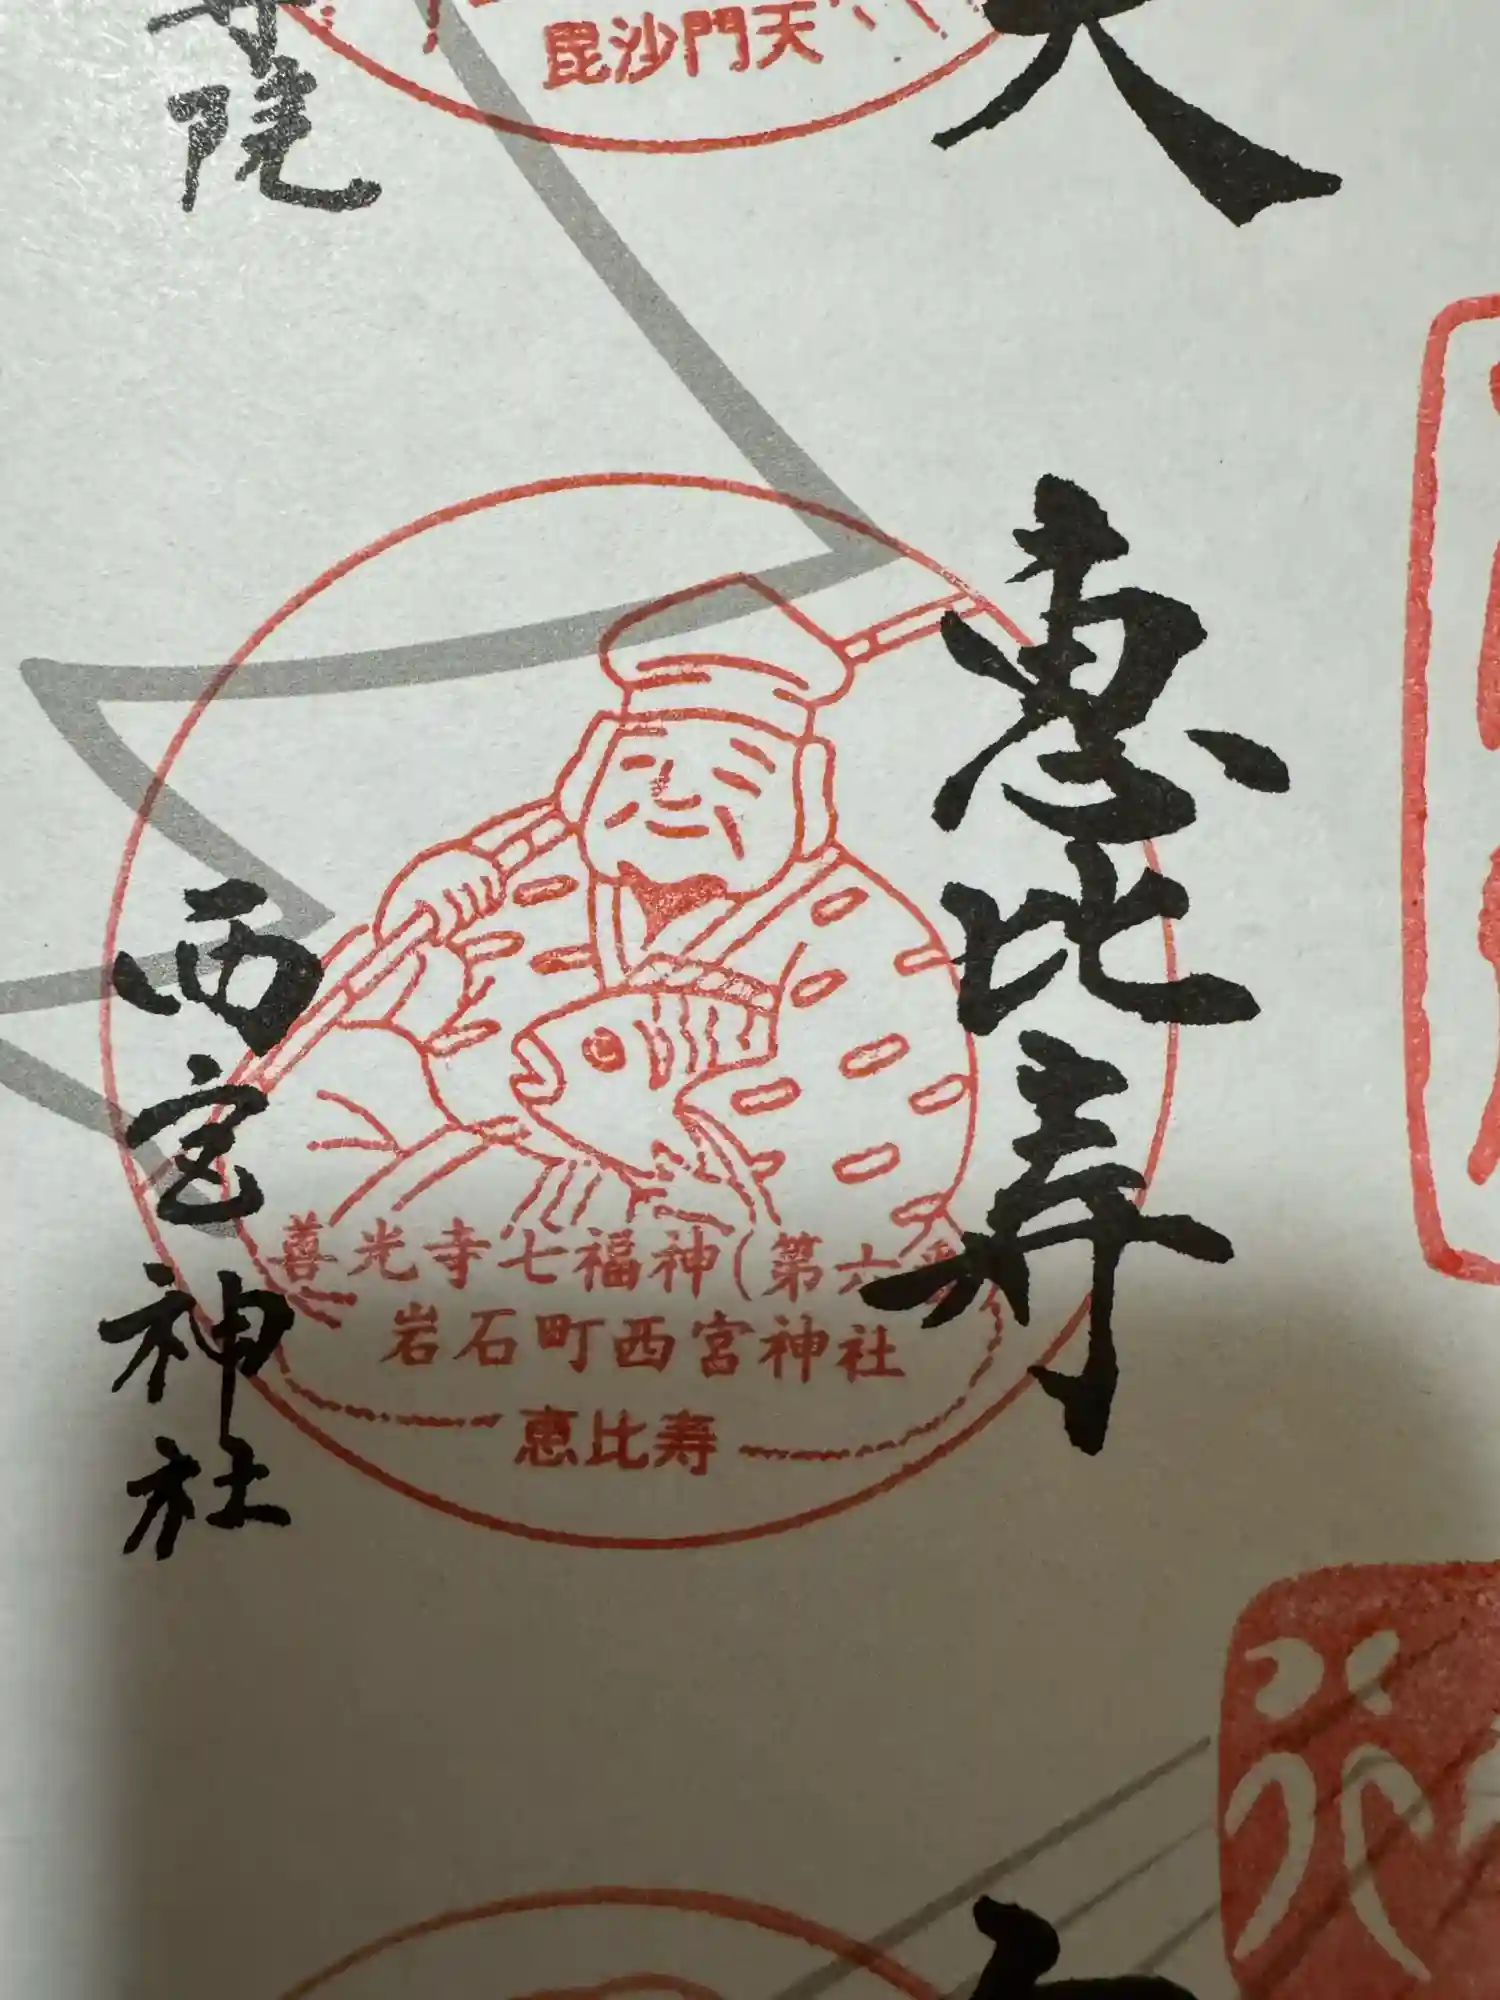 毘沙門天
天
院
恵比寿
西宮神社
善光寺七福神(第六番
岩石町西宮神社
恵比寿